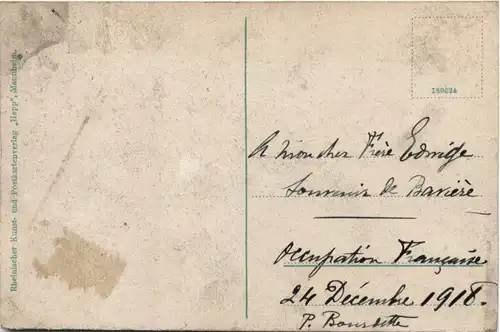 Rheinischer Kunst- und Postkartenverlag „Hepp", Mannheim.
189624
A mon cher Frère
Souvenir de Bavière
Occupation Française
24 Décembre 1918.
P. Bourdette